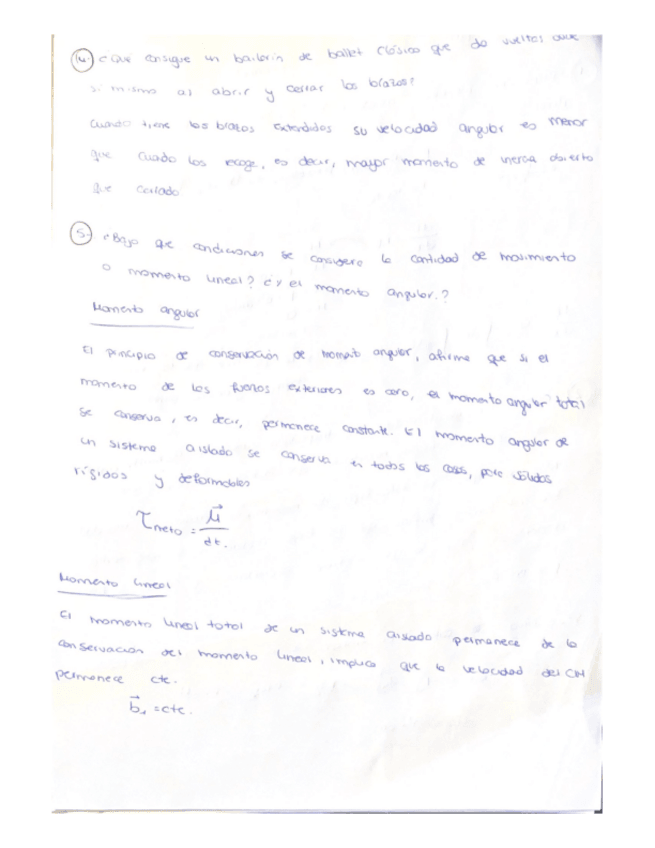 4. ¿Que consigue un bailarin de ballet clásico que da vueltas sobre
si mismo al abrir y cerrar los brazos?
Cuando tiene los brazos extendidos su velocidad angular es menor
que cuado los recoge, es decir, mayor momento de inercia abierto
que cerrado
5. ¿Bajo que condiciones se conserva la cantidad de movimiento
o momento lineal? ¿y el momento angular.?
Momento angular
El principio de conservación de momento angular, afirma que si el
momento de las fuerzas exteriores es cero, el momento angular total
se conserva, es decir, permanece constante. El momento angular de
un sistema aislado se conserva en todos los casos, para sólidos
rígidos y deformables
τneto = μ⃗ / dt.
Momento lineal
El momento lineal total de un sistema aislado permanece de la
conservación del momento lineal, implica que la velocidad del CM
permanece cte.
= cte.